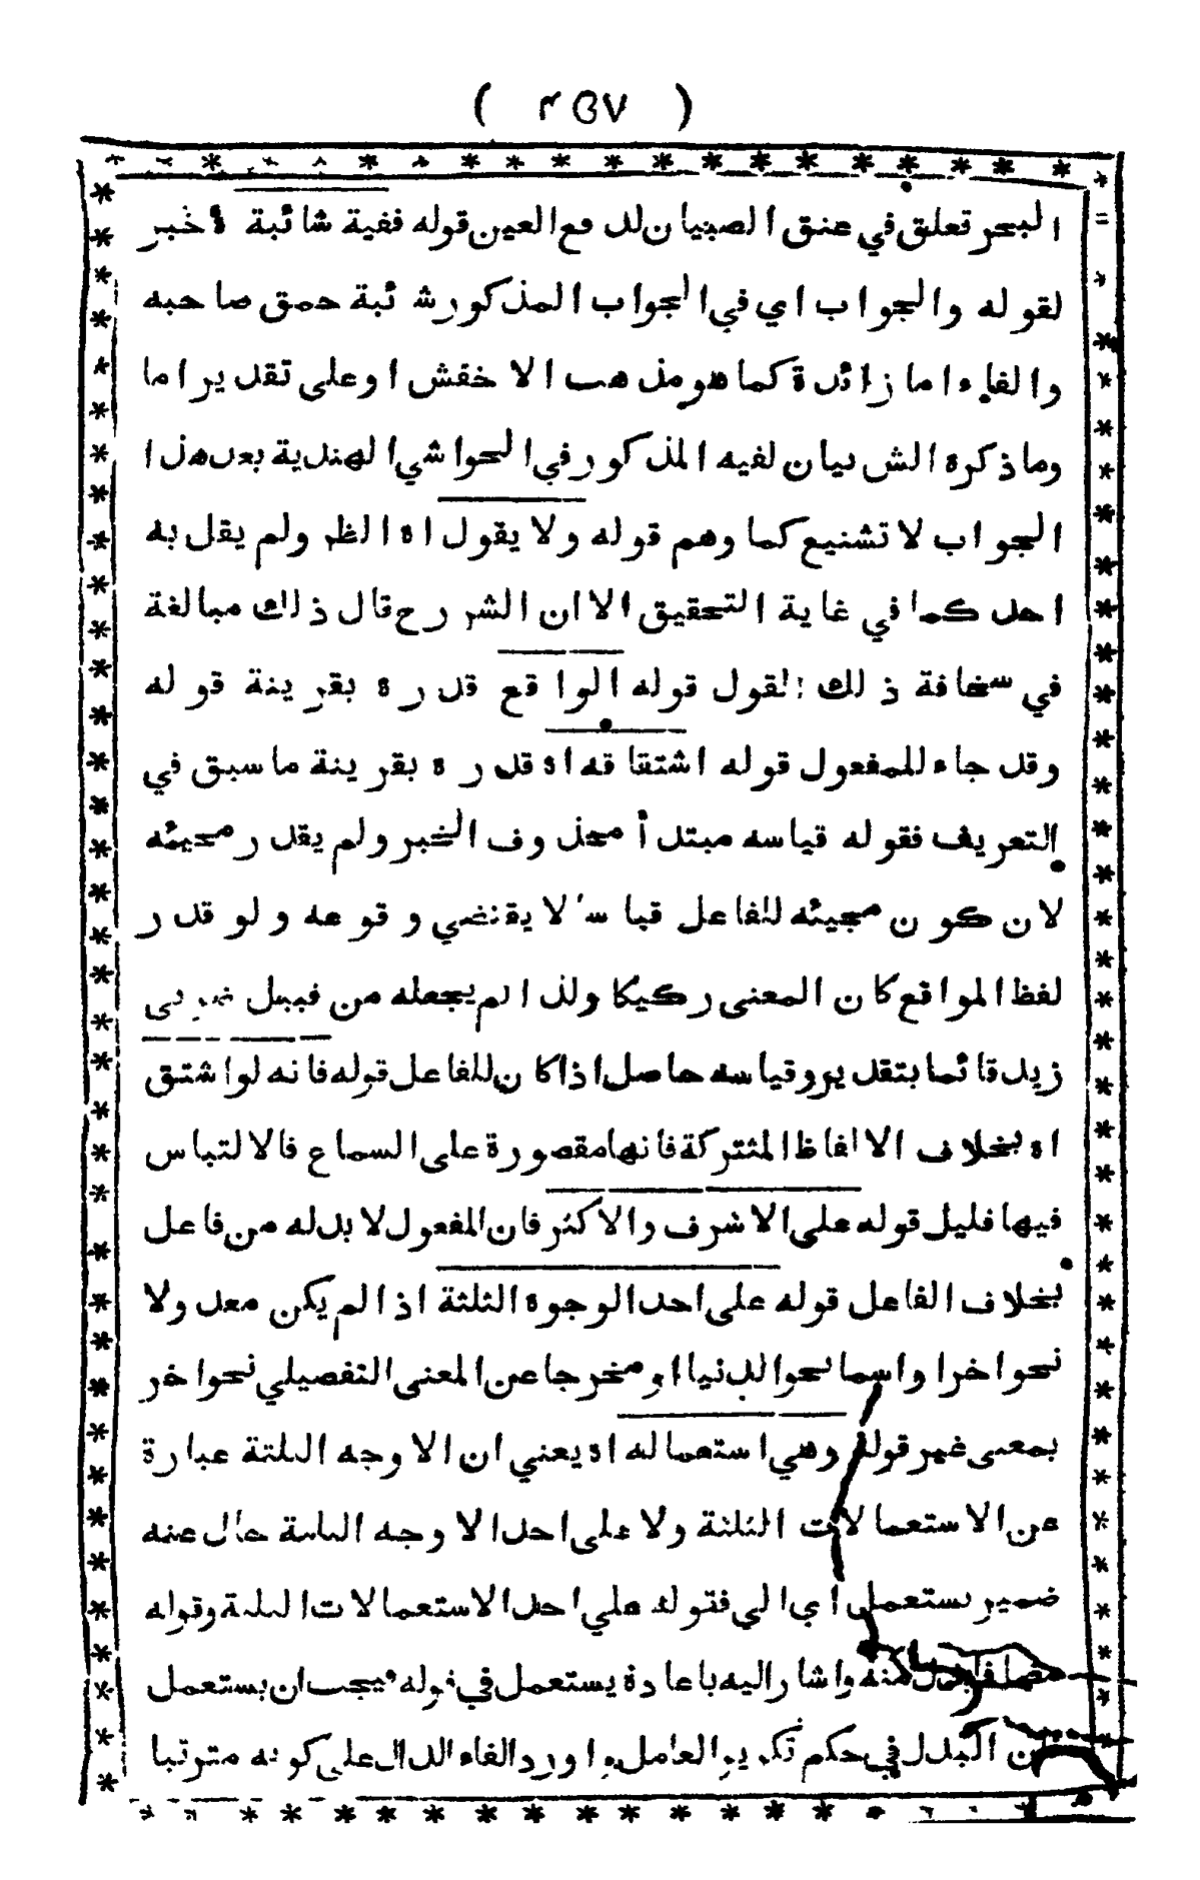 ( ٢٥٧ )
البحر تعلق في عنق الصبيان لدفع العين قوله ففية شائبة اه خبر
لقوله والجواب اي في الجواب المذكور شائبة حمق صاحبه
والفاء اما زائدة كما هو مذهب الاخفش او على تقدير اما
وما ذكره الش بيان لفيه المذكور في الحواشي الهندية بعد هذا
الجواب لا تشنيع كما وهم قوله ولا يقول اه الظ ولم يقل به
احد كما في غاية التحقيق الا ان الش رح قال ذلك مبالغة
في سخافة ذلك القول قوله الواقع قدره بقرينة قوله
وقد جاء للمفعول قوله اشتقاقه اه قدره بقرينة ما سبق في
التعريف فقوله قياسه مبتدأ محذوف الخبر ولم يقدر مجيئه
لان كون مجيئه للفاعل قياسه لا يقتضي وقوعه ولو قدر
لفظ الواقع كان المعنى ركيكا ولذا لم يجعله من قبيل ضربى
زيد قائما بتقدير وقياسه حاصل اذا كان للفاعل قوله فانه لو اشتق
اه بخلاف الالفاظ المشتركة فانها مقصورة على السماع فالالتباس
فيها قليل قوله على الاشرف والاكثر فان المفعول لا بد له من فاعل
بخلاف الفاعل قوله على احد الوجوه الثلثة اذا لم يكن معدولا
نحو اخر او اسما نحو الدنيا او مخرجا عن المعنى التفصيلي نحو اخر
بمعنى غير قوله وهي استعماله اه يعني ان الاوجه الثلثة عبارة
عن الاستعمالات الثلثة ولا على احد الاوجه الثلثة حال عنه
ضمير يستعمل اي الي فقوله علي احد الاستعمالات الثلثة وقوله
منه واشار اليه باعادة يستعمل في قوله فيجب ان يستعمل
ن البدل في حكم تكرير العامل واورد الفاء الدال على كونه مترتبا